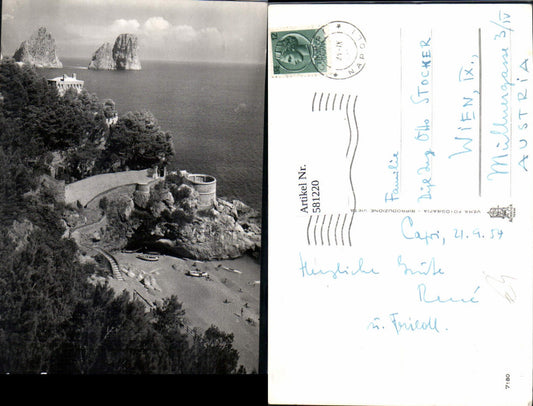 NAPOLI
Artikel Nr.
581220
Familie
Dipl. Ing. Otto STOCHER
WIEN, IX.,
Müllnergasse 3/IV
AUSTRIA
VERA FOTOGRAFIA - RIPRODUZIONE VIETATA
Capri, 21.9.57
Herzliche Grüße
René
u. Friedl.
7180